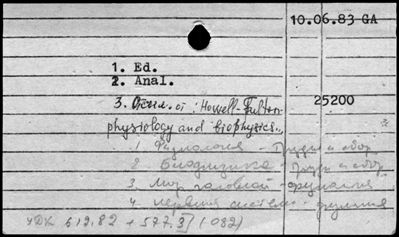 10.06.83 GA
1. Ed.
2. Anal.
3. от: Howell-Fulton
25200
physiology and biophysics...
1. Физиология - Труды и сбор
2. Биофизика - Труды и сбор
3. Мозг головной - физиология
4. Нервная система - физиология
УДК 612.82 + 577.3 (082)